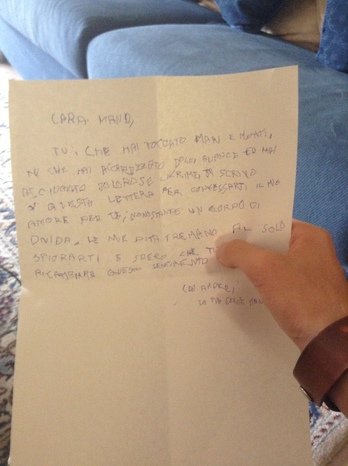 CARA MANO,
TU, CHE HAI TOCCATO MANI E
CHE HAI ACCAREZZATO
ASCIUGATO DOLOROSE LACRIME, TI SCRIVO
QUESTA LETTERA PER CONFESSARTI IL MIO
AMORE PER TE, NONOSTANTE UN CORPO CI
DIVIDA. LE MIE DITA TREMANO AL SOLO
SFIORARTI E SPERO CHE TU
RICAMBIARE QUESTO SENTIMENTO
CON AMORE,
LA TUA DOLCE